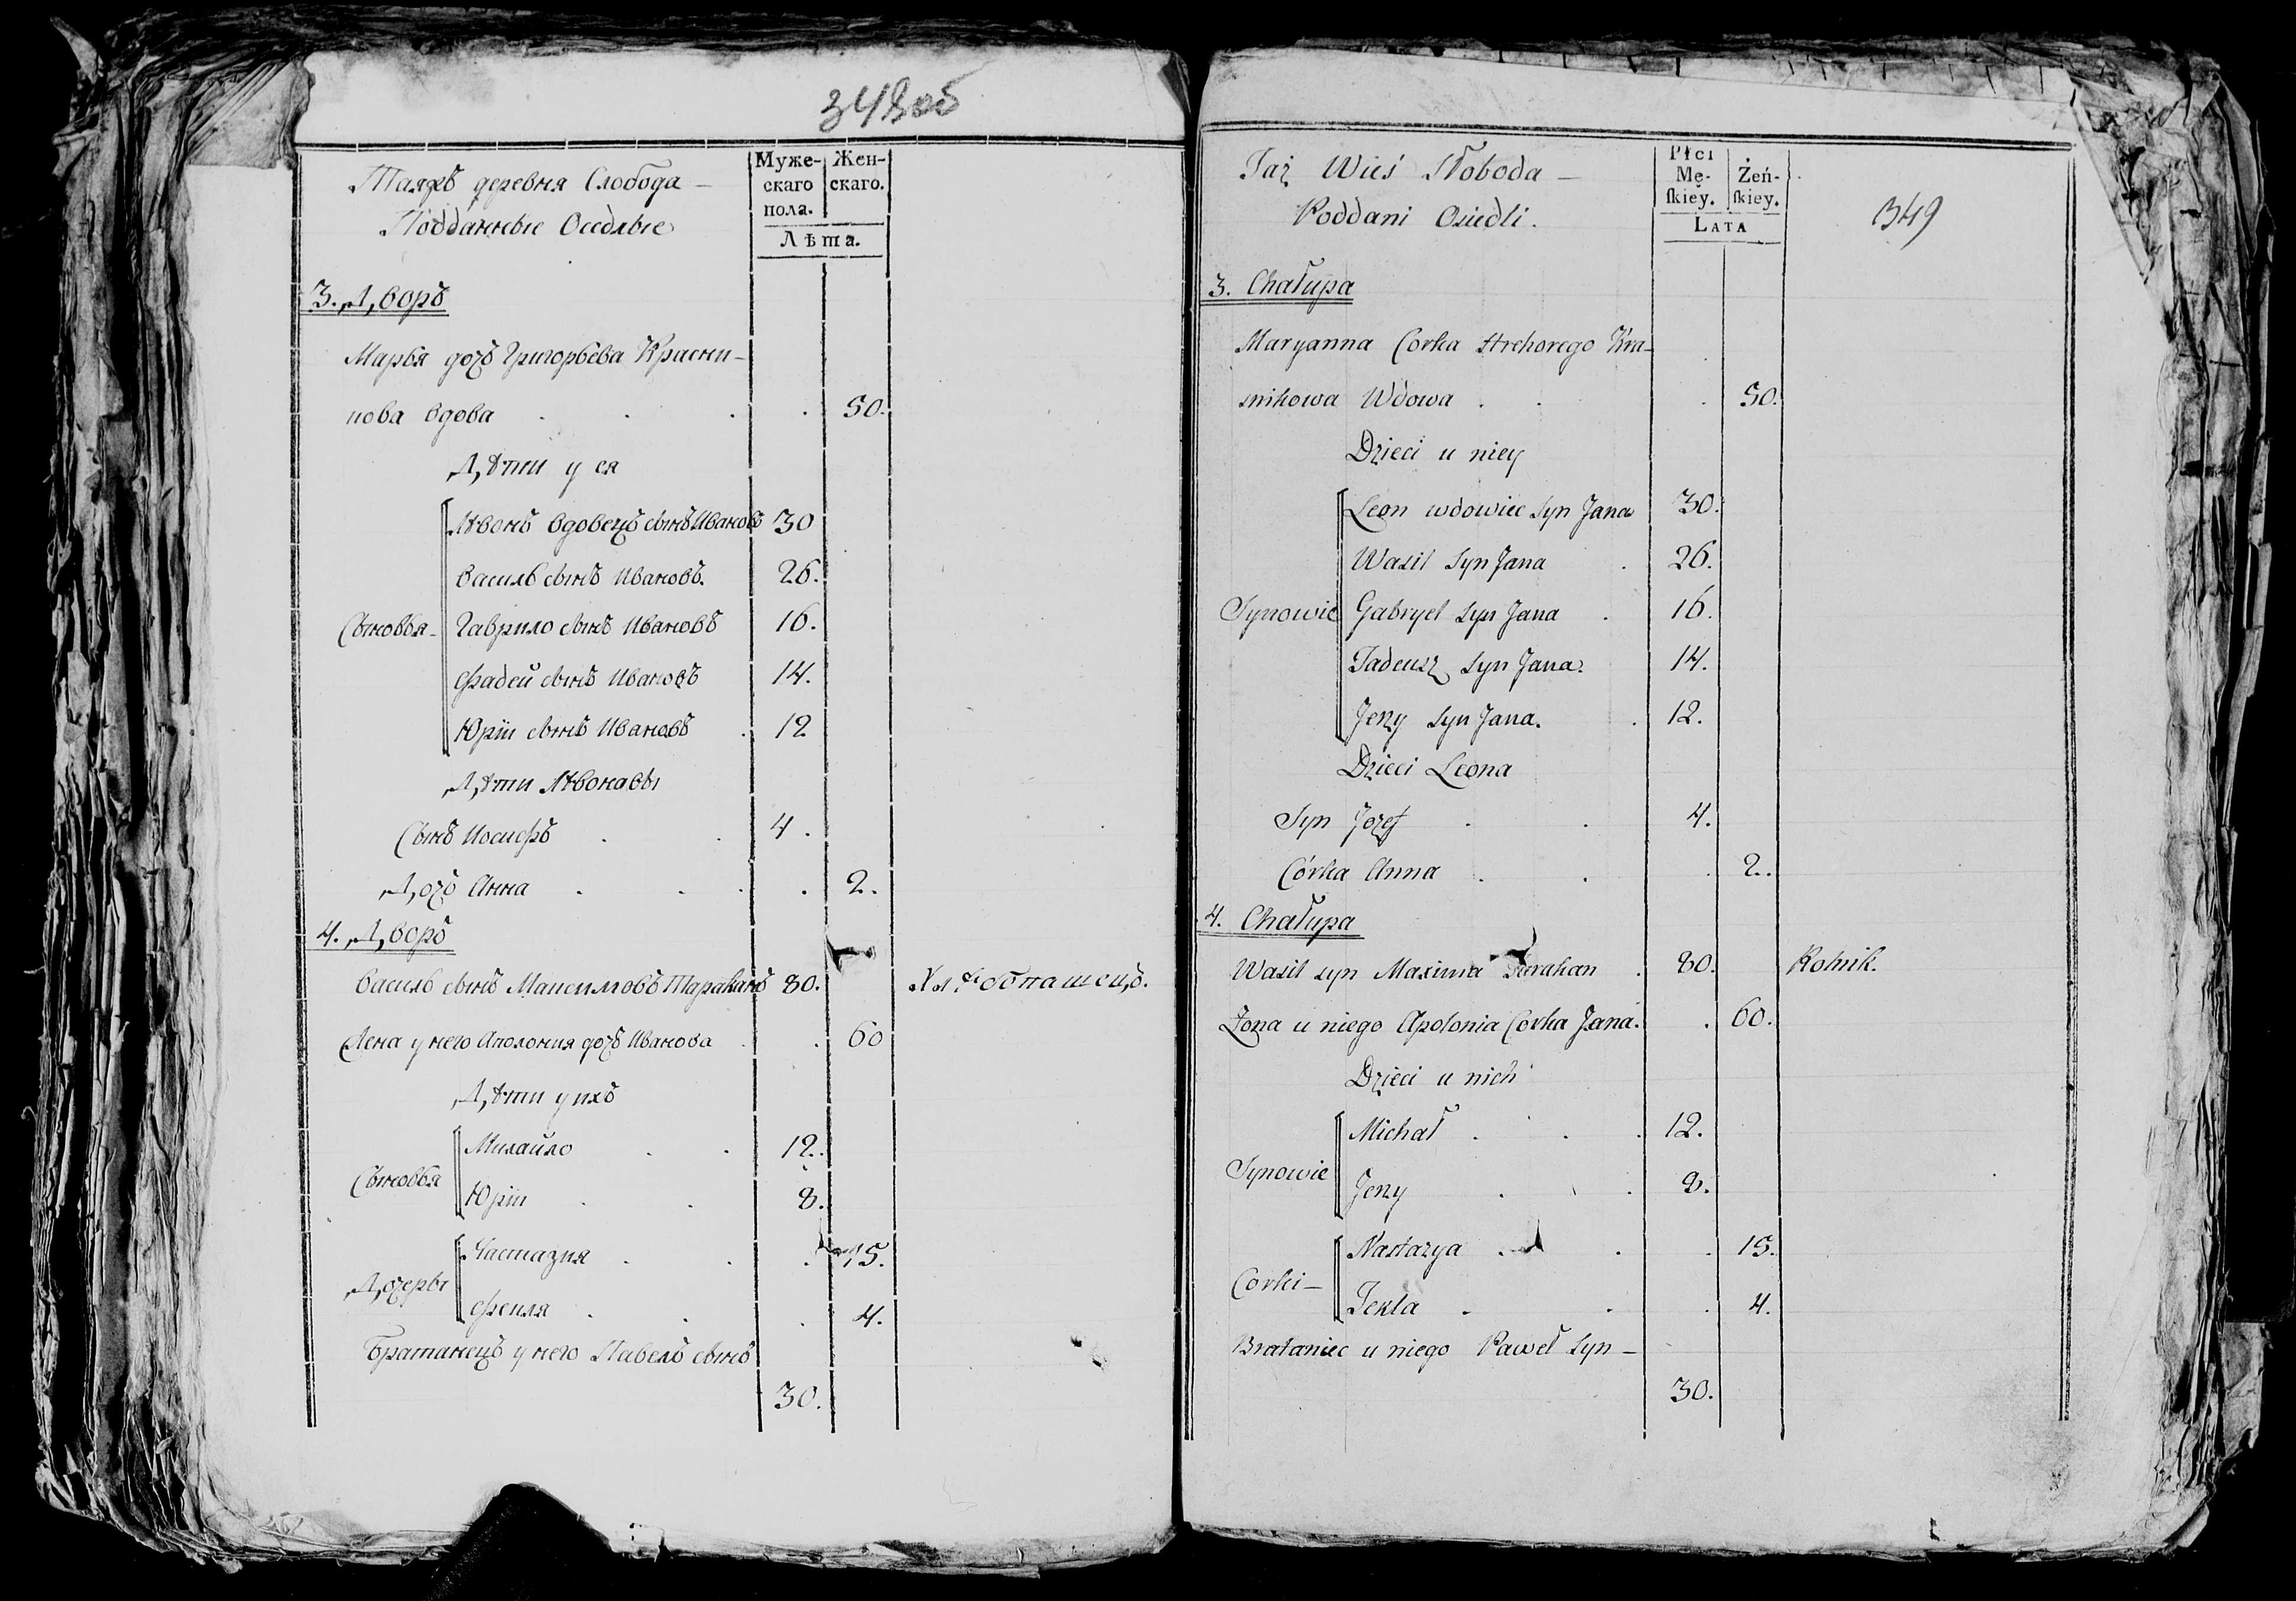 348об
Таяжъ деревня Слобода —
Подданные Оседлые
Муже-
скаго
пола.
Жен-
скаго.
Лѣта.
3. Дворъ
Марья дочь Григорьева Красни-
кова вдова . . . . 50.
Дѣти у ея
Лѣвонъ вдовецъ сынъ Ивановъ 30
Василь сынъ Ивановъ. 26.
Сыновья - Гаврило сынъ Ивановъ 16.
Фадей сынъ Ивановъ 14.
Юріи сынъ Ивановъ . 12
Дѣти Лѣвоновы
Сынъ Иосифъ . . 4.
Дочь Анна . . . . 2.
4. Дворъ
Василь сынъ Максимовъ Тараканъ 80. Хлѣбопашецъ.
Жена у него Аполония дочь Иванова . . 60
Дѣти у ихъ
Михайло . . 12.
Сыновья
Юріи . . 8.
Настазия . . . 15.
Дочеры
Фекля . . . 4.
Братанецъ у него Павелъ сынъ
30.
Taż Wieś Słoboda —
Poddani Osiedli.
Płci
Mę-
skiey.
Żeń-
skiey.
Lata
349
3. Chałupa
Maryanna Corka Hrehorego Kra-
snikowa Wdowa . . . 50.
Dzieci u niey
Leon wdowiec syn Jana 30.
Wasil syn Jana . 26.
Synowie Gabryel syn Jana . 16.
Tadeusz syn Jana. 14.
Jerzy syn Jana. . 12.
Dzieci Leona
Syn Jozef . . 4.
Córka Anna . . . 2.
4. Chałupa
Wasil syn Maxima Tarakan . 80. Rolnik.
Żona u niego Apolonia Corka Jana. . 60.
Dzieci u nich
Michał . . . 12.
Synowie
Jerzy . . . 8.
Nastazya . . . 15.
Corki —
Tekla . . . 4.
Brataniec u niego Paweł syn —
30.